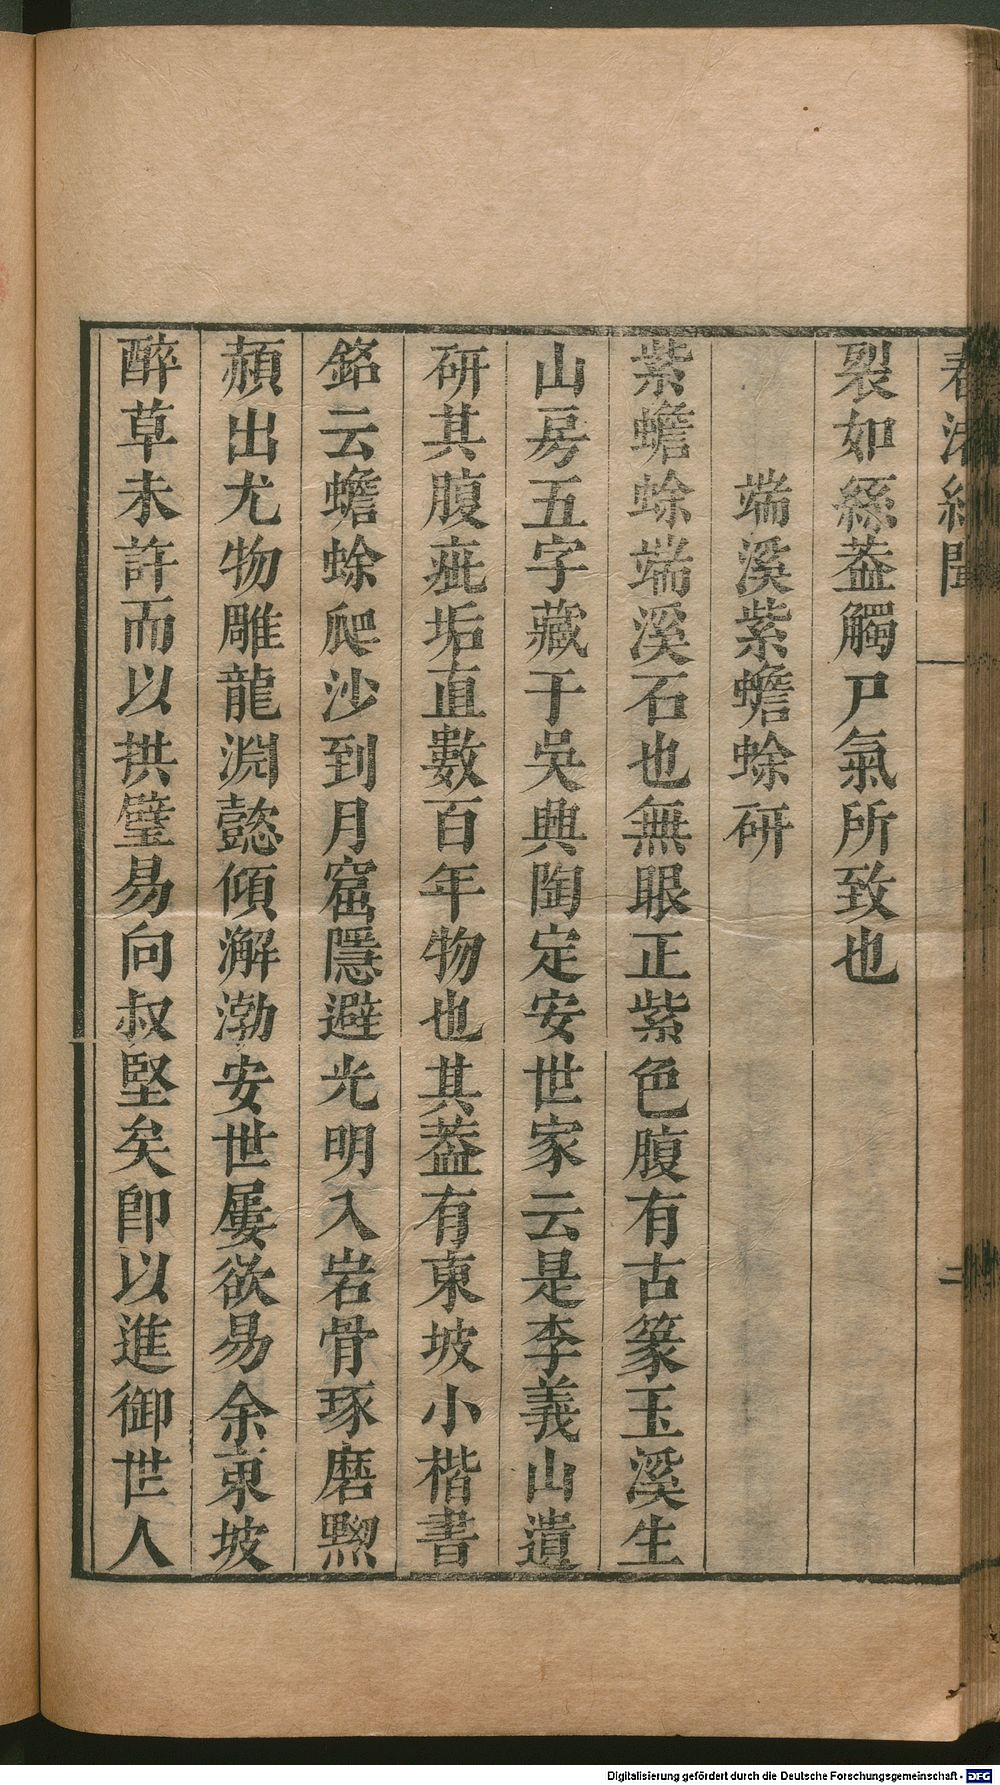 春渚紀聞 二
裂如絲葢觸尸氣所致也
端溪紫蟾蜍研
紫蟾蜍端溪石也無眼正紫色腹有古篆玉溪生
山房五字藏于吳興陶定安世家云是李義山遺
研其腹疵垢直數百年物也其葢有東坡小楷書
銘云蟾蜍爬沙到月窟隱避光明入岩骨琢磨黝
頳出尤物雕龍淵懿傾澥渤安世屢欲易余東坡
醉草未許而以拱璧易向叔堅矣卽以進御世人
Digitalisierung gefördert durch die Deutsche Forschungsgemeinschaft - DFG